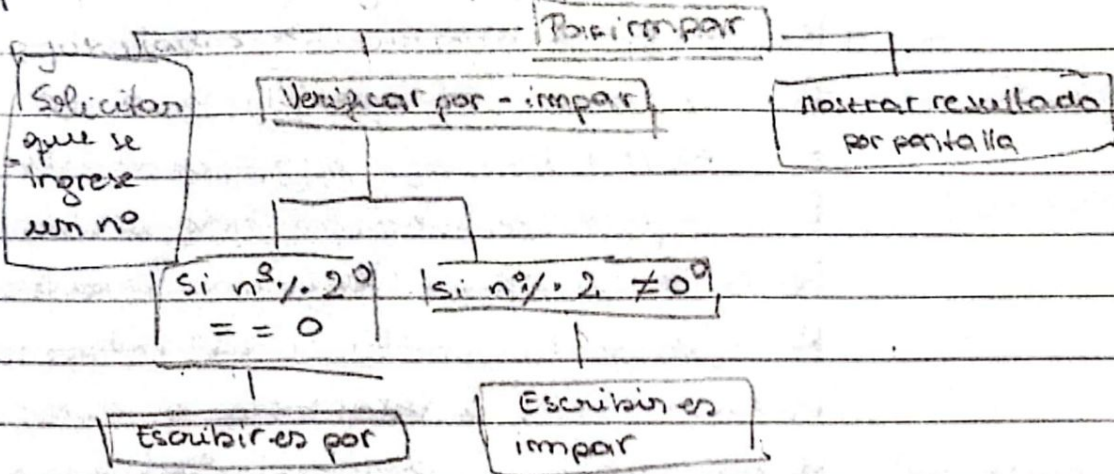 Par impar
Solicitar
que se
ingrese
un nº
Verificar par - impar
mostrar resultado
por pantalla
Si nº % 2
= = 0
si nº % 2 ≠ 0
Escribir es par
Escribir es
impar